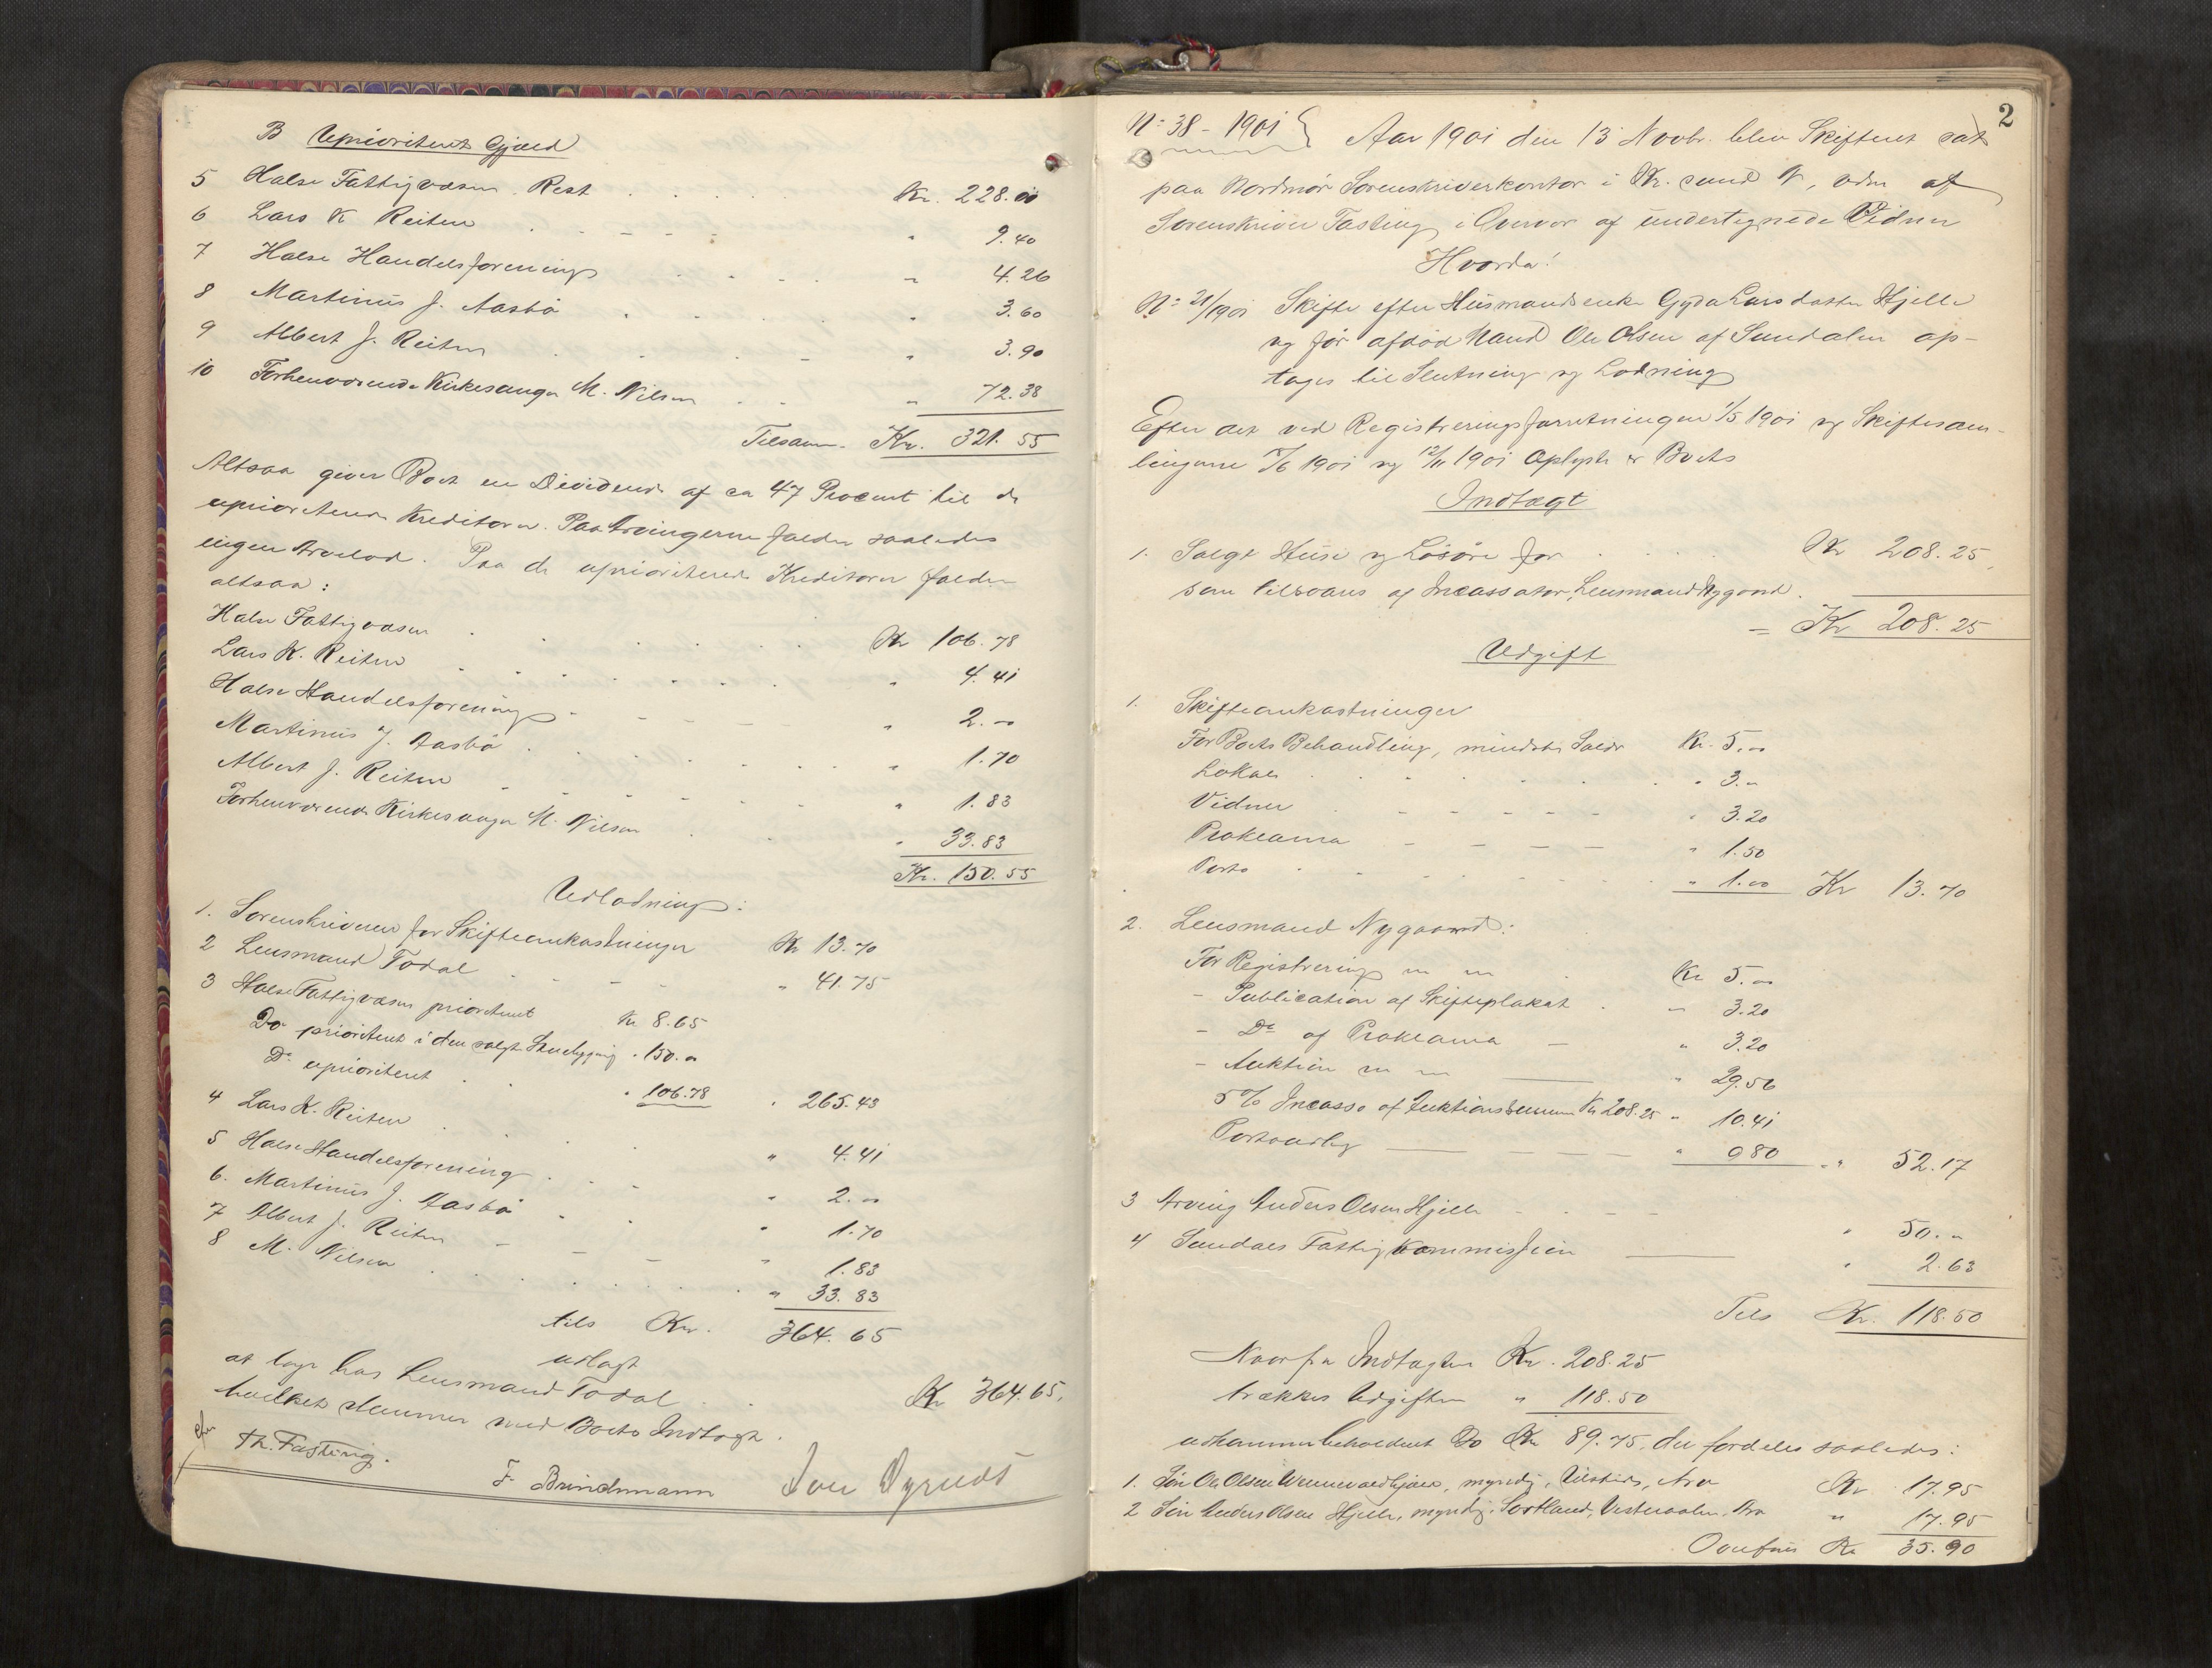 B Uprioriteret Gjæld
5 Halse Fattigvæsen Rest Kr. 228.00
6 Lars K Reiten " 9.40
7 Halse Handelsforening " 4.26
8 Martinus J. Aasbø " 3.60
9 Albert J. Reiten " 3.90
10 Forhenværende Kirkesanger M. Nilsen " 72.38
Tilsam. Kr. 321.55
Altsaa giver Boet en Dividende af ca 47 Procent til de
uprioriterede Kreditorer. Paa Arvingerne falder saaledes
ingen Arvelod. Paa de uprioriterede Kreditorer falder
altsaa:
Halse Fattigvæsen Kr 106.78
Lars K. Reiten " 4.41
Halse Handelsforening " 2.00
Martinus J. Aasbø " 1.70
Albert J. Reiten " 1.83
Forhenværende Kirkesanger M. Nilsen " 33.83
Kr. 150.55
Udlodning:
1. Sorenskriveren for Skifteomkostninger Kr 13.70
2 Lensmand Todal " 41.75
3 Halse Fattigvæsen prioriteret Kr 8.65
Do prioriteret i den solgte Stuebygning " 150.00
Do uprioriteret " 106.78 " 265.43
4 Lars K. Reiten " 4.41
5 Halse Handelsforening " 2.00
6. Martinus J. Aasbø " 1.70
7 Albert J. Reiten " 1.83
8 M. Nilsen " 33.83
tils Kr. 364.65
udlagt
at tage hos Lensmand Todal Kr 364.65,
hvilket stemmer med Boets Indtægt.
Th. Fasting.
F. Brinchmann
2
No 38 - 1901 Aar 1901 den 13 Novbr. blev Skifteret sat
paa Nordmør Sorenskriverkontor i Kr.sund N, adm af
Sorenskriver Fasting i Overvær af undertegnede Vidner
Hvorda:
No 21/1901 Skifte efter Husmandsenke Gyda Larsdatter Hjelle
og før afdød Mand Ole Olsen af Sundalen op-
tages til Slutning og Lodning
Efter det ved Registreringsforretningen 1/5 1901 og Skiftesam-
lingerne /6 1901 og 12/11 1901 Oplyste er Boets
Indtægt
1. Solgt Huse og Løsøre for Kr 208.25,
som tilsvares af Incassator, Lensmand Nygaard.
= Kr 208.25
Udgift
1. Skifteomkostninger
For Boets Behandling, mindste Kr. 5.00
Lokale " 3.00
Vidner " 3.20
Proklama " 1.50
Porto " 1.00 Kr 13.70
2. Lensmand Nygaard:
For Registrering m m Kr 5.00
- Publication af Skifteplakat " 3.20
- Do af Proklama " 3.20
- Auktion m m " 29.56
5% Incasso af Auktionssummen Kr 208.25 " 10.41
Portoudlæg " 080 " 52.17
3 Arving Anders Olsen Hjelle " 50.00
4 Sundals Fattigkommission " 2.63
Tils Kr. 118.50
Naar fra Indtægten Kr. 208.25
trækkes Udgiften " 118.50
udkommer beholdent Bo Kr 89.75, der fordeles saaledes:
1. Søn Ole Olsen myndig, Arv Kr 17.95
2 Søn Anders Olsen Hjelle, myndig, Sortland, Vesteraalen, Arv " 17.95
Overføres Kr 35.90